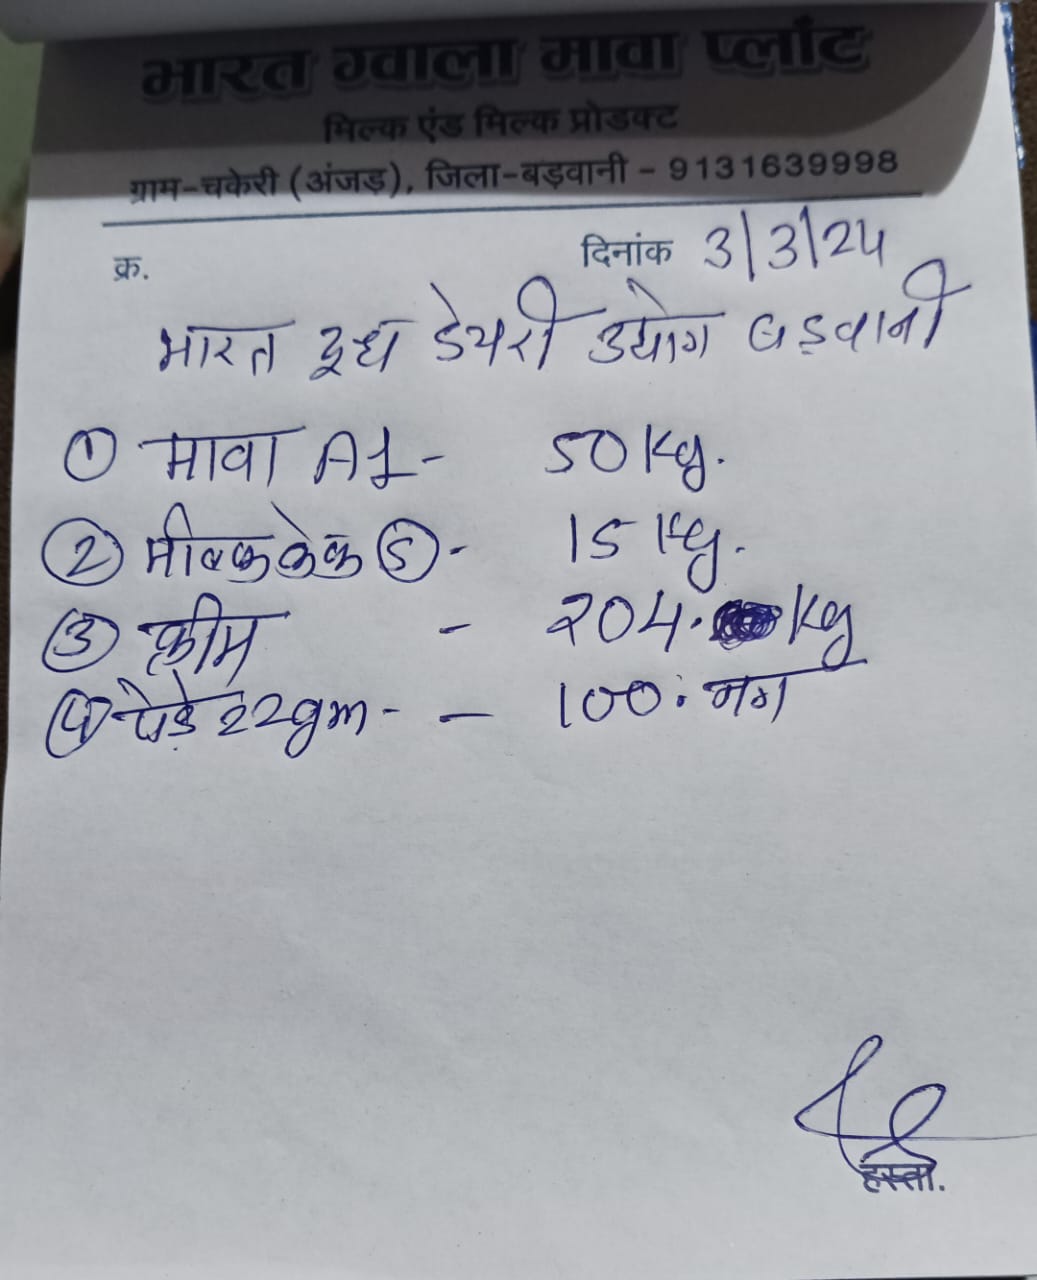 भारत ग्वाला मावा प्लांट
मिल्क एंड मिल्क प्रोडक्ट
ग्राम-चकेरी (अंजड़), जिला-बड़वानी - 9131639998
क्र. दिनांक 3/3/24
भारत दुध डेयरी उद्योग बड़वानी
① मावा A1 - 50 Kg.
② मील्क केक Ⓢ - 15 Kg.
③ क्रीम - 204. Kg
④ पेड़े 22gm - - 100. नग
हस्ता.